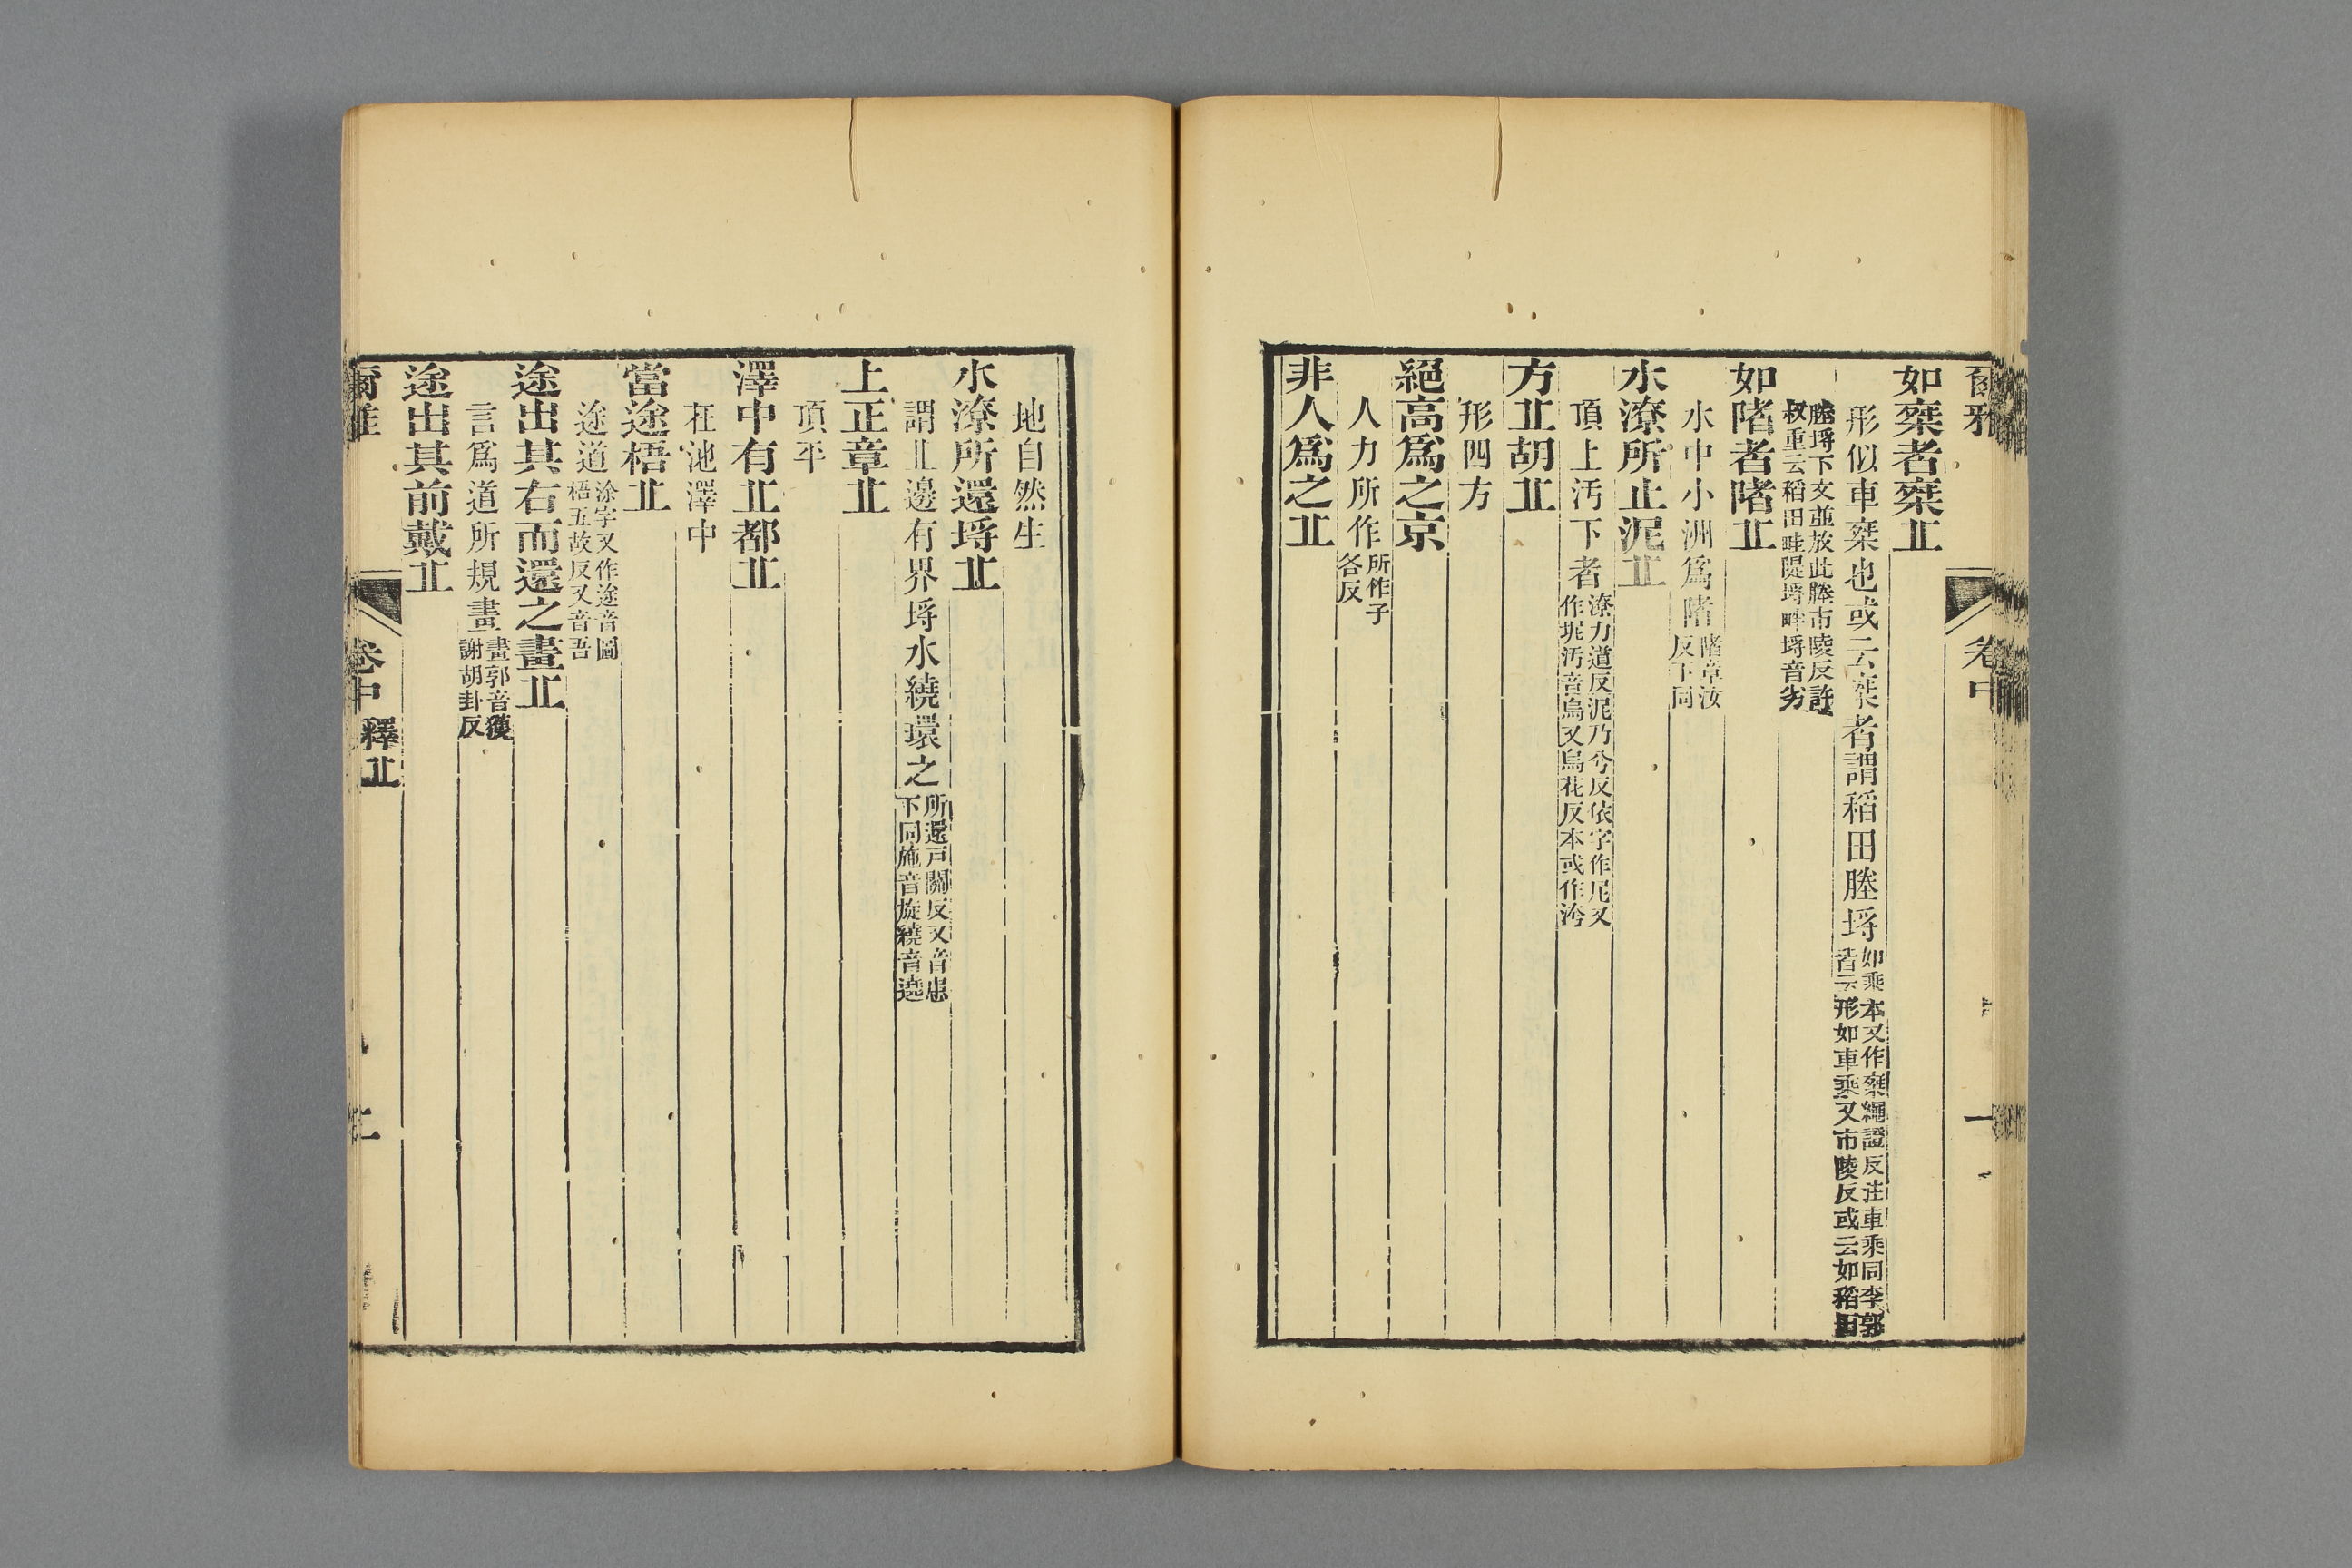 爾雅 卷中
如椉者椉丠
形似車椉也或云椉者謂稻田塍埒如乘本又作椉繩證反注車乘同李郭
皆云形如車乘又市陵反或云如稻田
塍埒下文並放此塍市陵反許
叔重云稻田畦隄埒畔埒音劣
如陼者陼丠
水中小洲爲陼陼章汝
反下同
水潦所止泥丠
頂上汚下者潦力道反泥乃兮反依字作尼又
作坭汚音烏又烏花反本或作洿
方丠胡丠
形四方
絕高爲之京
人力所作所作子
各反
非人爲之丠
地自然生
水潦所還埒丠
謂丠邊有界埒水繞環之所還戸關反又音患
下同施音旋繞音遶
上正章丠
頂平
澤中有丠都丠
在池澤中
當途梧丠
途道涂字又作途音圖
梧五故反又音吾
途出其右而還之畫丠
言爲道所規畫畫郭音獲
謝胡卦反
途出其前戴丠
爾雅 卷中 釋丠